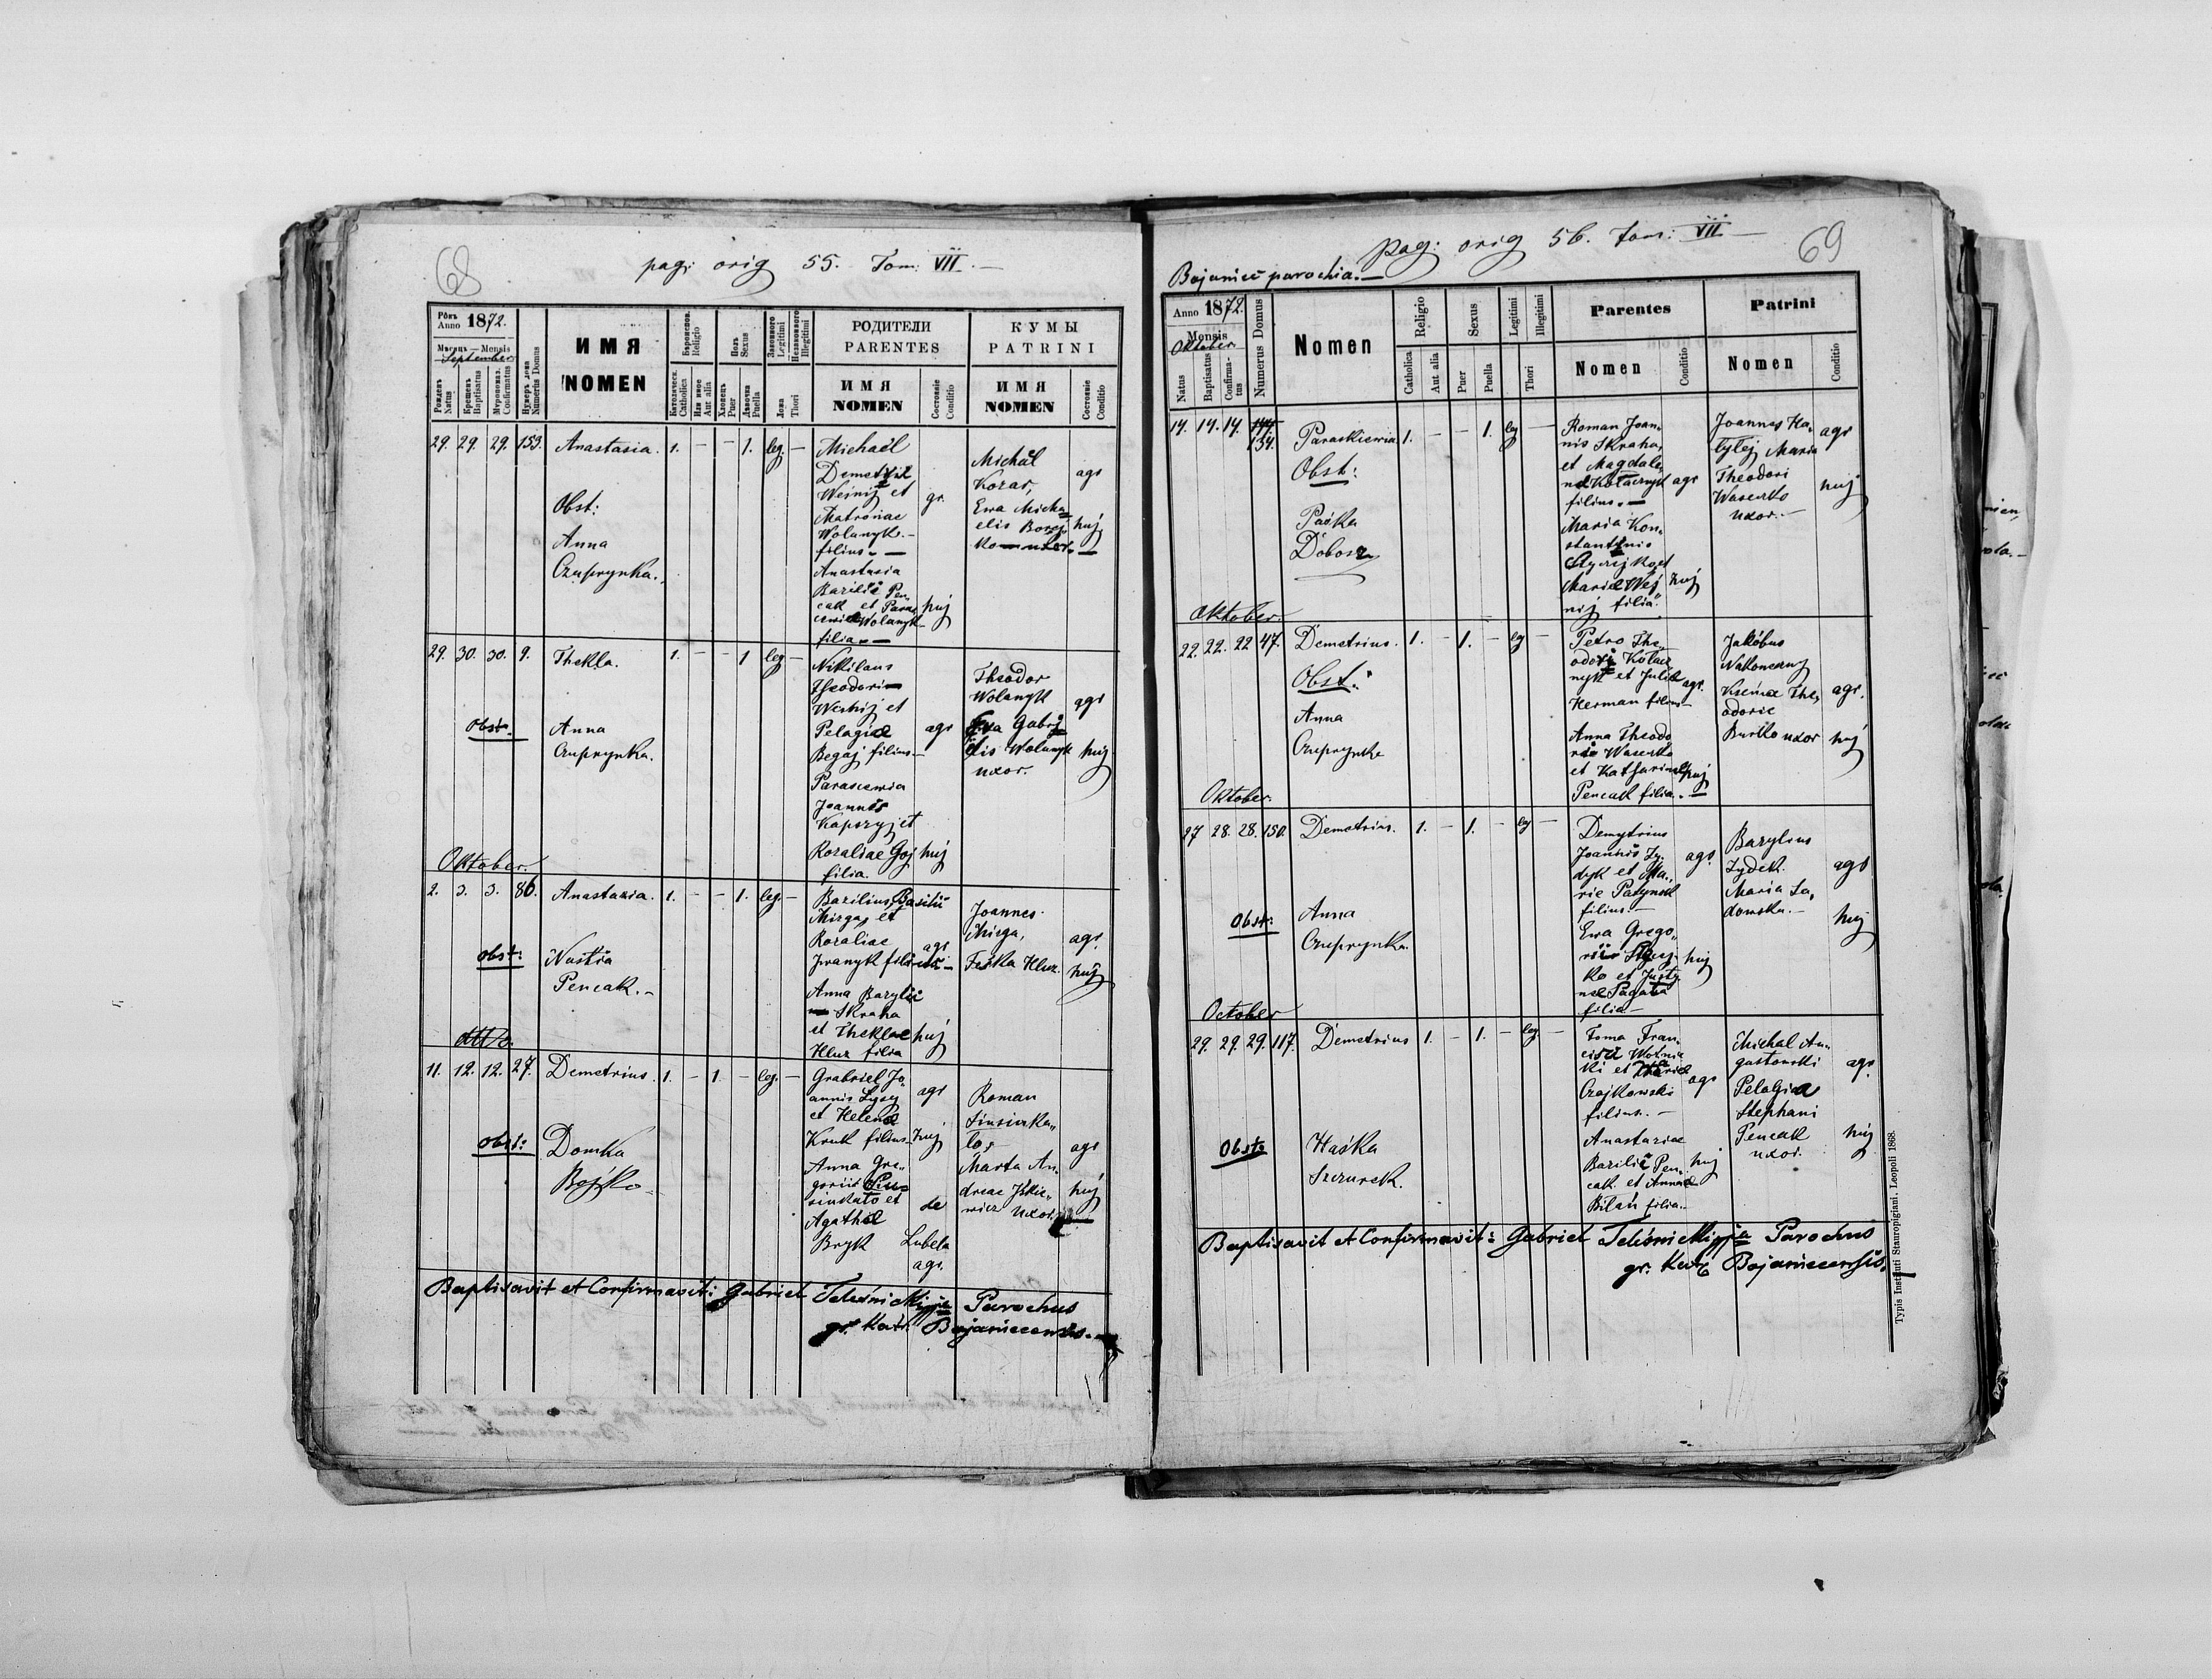 68
pag: orig 55. Tom: VII.
Рôкъ
Anno 1872.
Мѣсяцъ — Mensis
September
Рожденъ
Natus
Крещенъ
Baptisatus
Мѵропомаз.
Confirmatus
Нумеръ дома
Numerus Domus
ИМЯ
NOMEN
Вѣроиспов.
Religio
Католическ.
Catholica
Или иное
Aut alia
Полъ
Sexus
Хлопецъ
Puer
Дѣвочка
Puella
Законного
Legitimi
Незаконного
Illegitimi
Ложа
Thori
РОДИТЕЛИ
PARENTES
ИМЯ
NOMEN
Состояніе
Conditio
КУМЫ
PATRINI
ИМЯ
NOMEN
Состояніе
Conditio
29. 29. 29. 153. Anastasia. 1. – – 1. leg. –
Obst:
Anna
Czuprynka.
Michael
Demetrii
Wejnij et
Matronae
Wolanyk.–
filius.–
Anastasia
Bazilii Pen„
cak et Paras„
cewiae Wolanyk
filia.–
gr.
huj
Michál
Kozar,
Ewa Micha„
elis Borej
ko uxor.–
agr
huj
29. 30. 30. 9. Thekla. 1. – – 1 leg –
Obst.
Anna
Czuprynka.
Nikilaus
Theodori
Weshij et
Pelagiae
Begaj filius–
Parascewia
Joannis
Kapszyj et
Rozaliae Goj
filia.
agr
huj
Theodor
Wolanyk
Ewa Gabrj
elis Wolanyk
uxor.
agr
huj
Oktober.
2. 3. 3. 86. Anastazia. 1. – – 1. leg. –
Obst:
Nastia
Pencak.–
Bazilius Basilii
Mirga, et
Rozaliae
Iwanyk filius–
Anna Bazylii
Skraha
et Theklae
Kluz filia
agr
huj
Joannes
Mirga,
Feśka Kluz.
agr.
huj
dtto.
11. 12. 12. 27. Demetrius. 1. – 1. – leg. –
Obst:
Domka
Bojko
Grabriel Jo„
annis Lysyj
et Helenae
Kruk filius–
Anna Gre„
gorii
sinkato et
Agathae
Bryk
agr
huj
de
Lubela
agr.
Roman
Sinsinka„
lo,
Marta An„
dreae Iśkie„
wicz uxor.
agr
huj
Baptisavit et Confirmavit: Gabriel Parochus
gr. kat: Bojanecensis.
69
pag: orig 56. Tom: VII
Bojaniec parochia.–
Anno 1872.
Mensis
Oktober
Natus
Baptisatus
Confirma-
tus
Numerus Domus
Nomen
Religio
Catholica
Aut alia
Sexus
Puer
Puella
Legitimi
Illegitimi
Thori
Parentes
Nomen
Conditio
Patrini
Nomen
Conditio
14. 14. 14. 144. 134. Paraskiewia. 1. – – 1. leg –
Obst:
Paśka
Dobosz
Roman Joan„
nis Skraha,
et Magdale„
nae Kołacznyk
filius.–
Maria Kon„
stantinis
et
Mariae Wej
nij filia.
agr
huj
Joannes Ha„
tylej Maria
Theodori
Wasenko
uxor.–
agr
huj
Oktober.
22. 22. 22 47. Demetrius. 1. – 1. – leg –
Obst:
Anna
Czuprynka
Petro The„
odori Kołacz
nyk et Juliae
Herman filius–
Anna Theodo
rio Wasenko
et Katharinae
Pencak filia.–
agr.
huj
Jakóbus
Nakoneczny
Ksenia The„
odoric
Burłko uxor
agr.
huj
Oktober.
27 28. 28. 150. Demetrius. 1. – 1. – leg –
Obst:
Anna
Czuprynka.
Demytrius
Joannis Zy„
dyk et Ma„
rie Patynok
filius.–
Ewa Grego„
ko et Justy
nae
filia–
agr.
huj
Bazylius
Zydek.
Maria Sa„
dowska.–
agr
huj
October
29. 29. 29. 117. Demetrius 1. – 1. – leg –
Obst:
Haśka
Szczurek.
Toma Fran„
cisci Wolnia
ki et Mariae
Czajkowski
filius.–
Anastaziae
Bazilii Pen„
cak et Annae
Bilan filia.–
agr
huj
Michal Au„
gustowski
Pelagiaa
Stephani
Pencak
uxor.
agr.
huj
Baptisavit et Confirmavit: Gabriel Parochus
gr. kat: Bojaniecensis.
Typis Instituti Stauropigiani. Leopoli 1868.